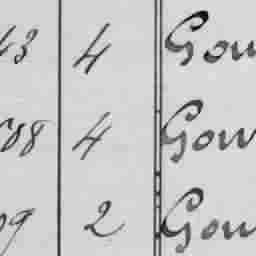 43 4 Gou
788 4 Gou
09 2 Gou